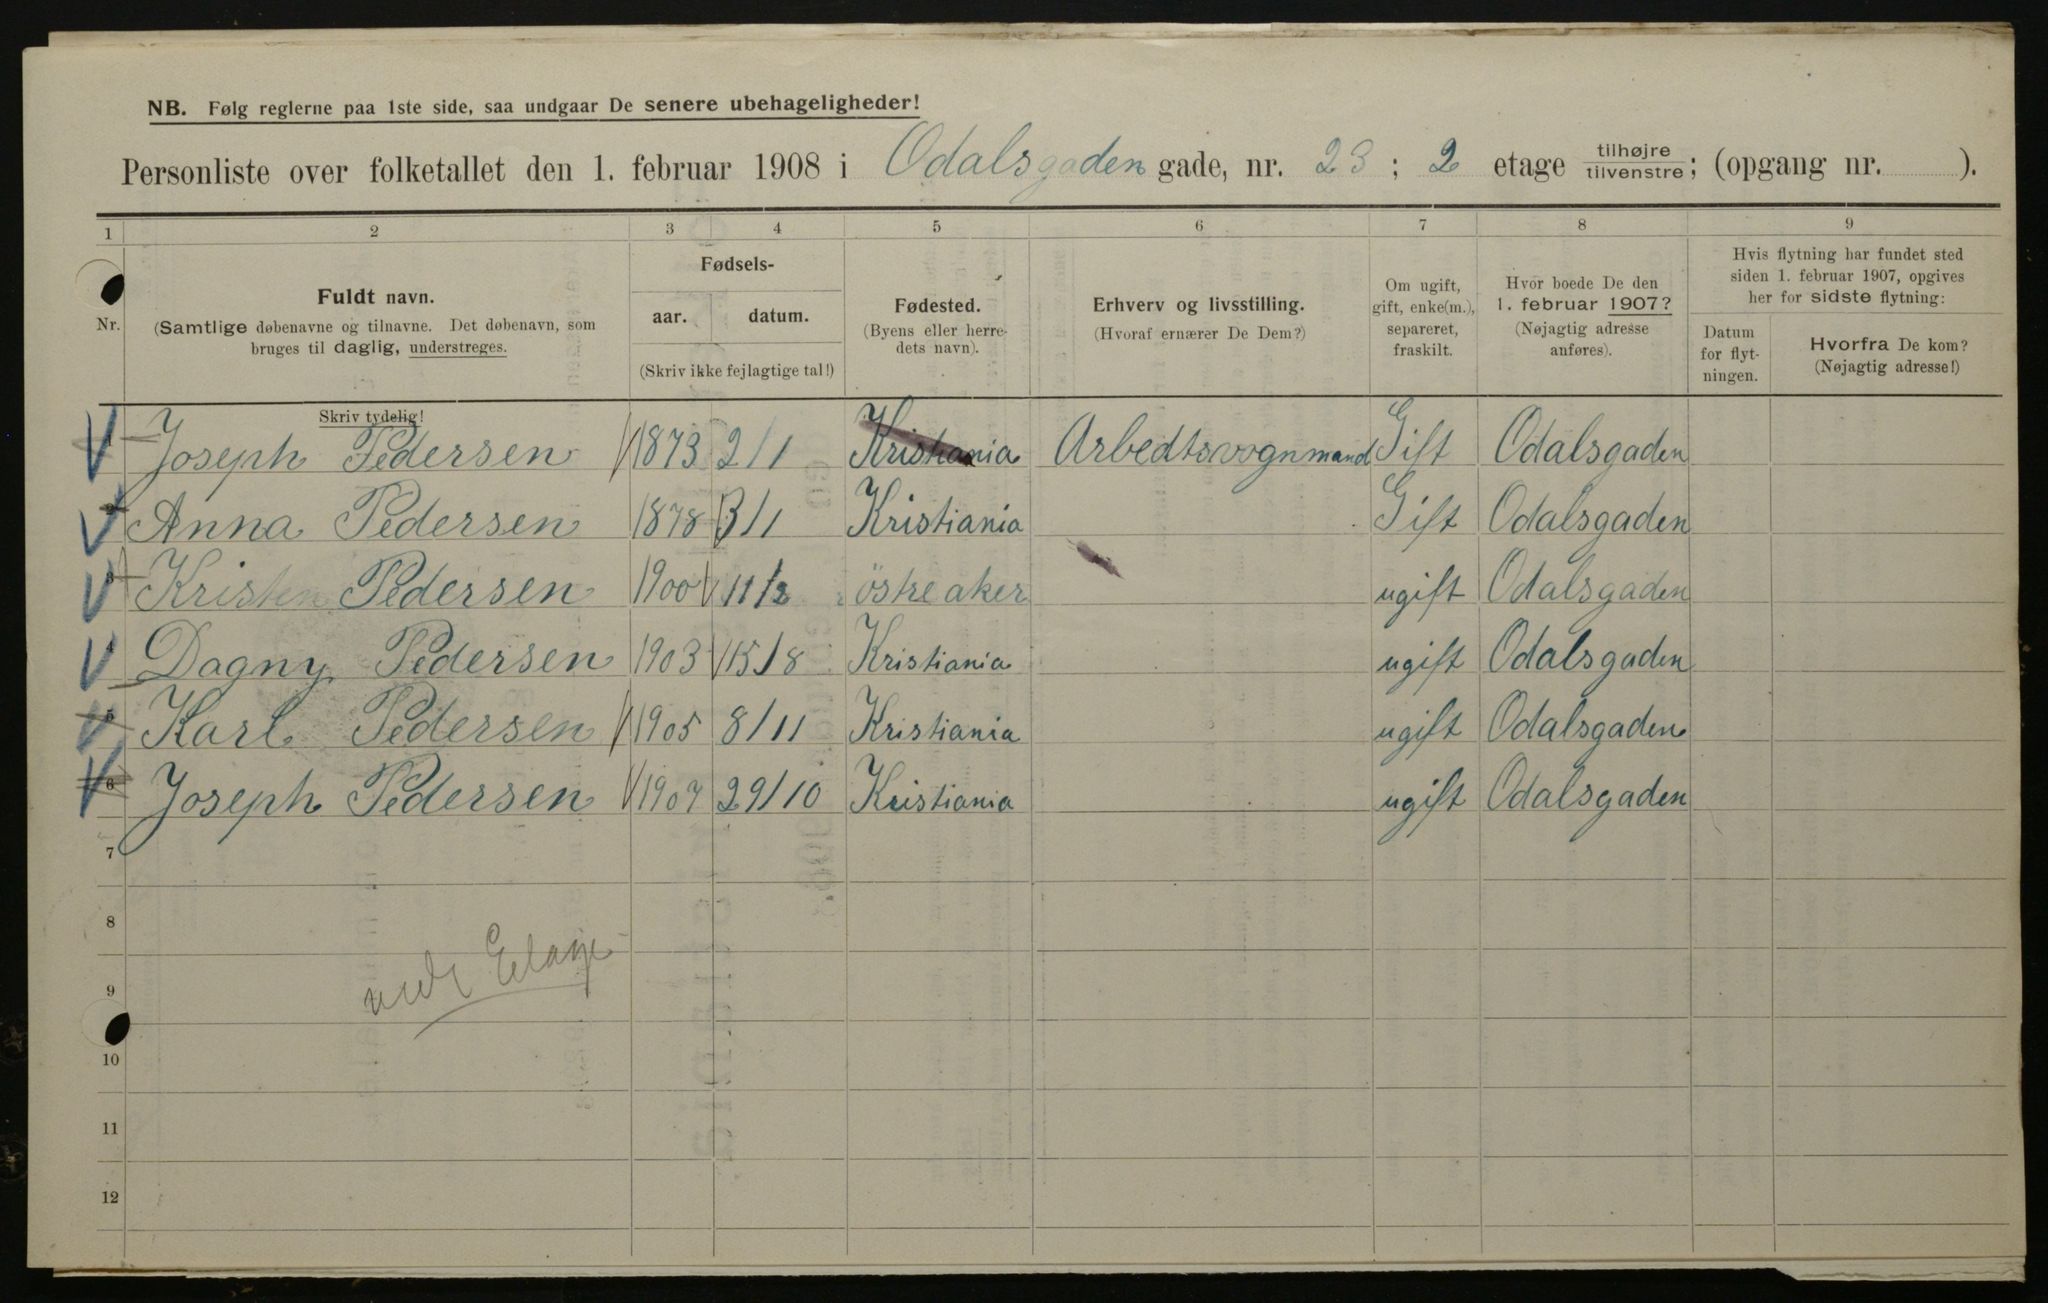 NB. Følg reglerne paa 1ste side, saa undgaar De senere ubehageligheder!
Personliste over folketallet den 1. februar 1908 i Odalsgaden gade, nr. 23 ; 2 etage tilhøjre / tilvenstre ; (opgang nr. ).
1 2 3 4 5 6 7 8 9
Nr.
Fuldt navn.
(Samtlige døbenavne og tilnavne. Det døbenavn, som
bruges til daglig, understreges.
Fødsels-
aar. datum.
(Skriv ikke fejlagtige tal!)
Fødested.
(Byens eller herre-
dets navn).
Erhverv og livsstilling.
(Hvoraf ernærer De Dem?)
Om ugift,
gift, enke(m.),
separeret,
fraskilt.
Hvor boede De den
1. februar 1907?
(Nøjagtig adresse
anføres).
Hvis flytning har fundet sted
siden 1. februar 1907, opgives
her for sidste flytning:
Datum
for flyt-
ningen.
Hvorfra De kom?
(Nøjagtig adresse!)
Skriv tydelig!
Joseph Pedersen 1873 2/1 Kristiania Arbedtsvognmand Gift Odalsgaden
Anna Pedersen 1878 3/1 Kristiania Gift Odalsgaden
Kristen Pedersen 1900 11/2 östre aker ugift Odalsgaden
Dagny Pedersen 1903 15/8 Kristiania ugift Odalsgaden
5 Karl Pedersen 1905 8/11 Kristiania ugift Odalsgaden
6 Joseph Pedersen 1907 29/10 Kristiania ugift Odalsgaden
7
8
9
10
11
12